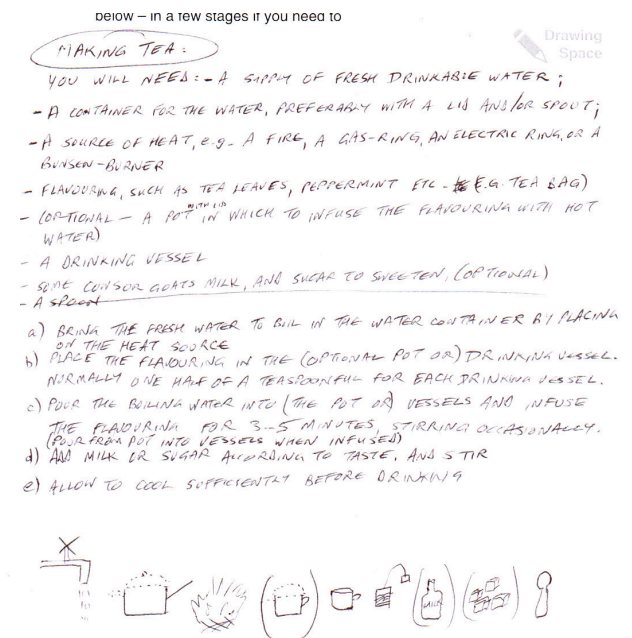 below – in a few stages if you need to
Drawing
Space
MAKING TEA:
YOU WILL NEED:- A SUPPLY OF FRESH DRINKABLE WATER;
- A CONTAINER FOR THE WATER, PREFERABLY WITH A LID AND/OR SPOUT;
- A SOURCE OF HEAT, e.g. A FIRE, A GAS-RING, AN ELECTRIC RING, OR A
BUNSEN-BURNER
- FLAVOURING, SUCH AS TEA LEAVES, PEPPERMINT ETC - (E.G. TEA BAG)
- (OPTIONAL - A POT WITH LID IN WHICH TO INFUSE THE FLAVOURING WITH HOT
WATER)
- A DRINKING VESSEL
- SOME COW'S OR GOATS MILK, AND SUGAR TO SWEETEN, (OPTIONAL)
- A SPOON
a) BRING THE FRESH WATER TO BOIL IN THE WATER CONTAINER BY PLACING
ON THE HEAT SOURCE
b) PLACE THE FLAVOURING IN THE (OPTIONAL POT OR) DRINKING VESSEL.
NORMALLY ONE HALF OF A TEASPOONFUL FOR EACH DRINKING VESSEL.
c) POUR THE BOILING WATER INTO (THE POT OR) VESSELS AND INFUSE
THE FLAVOURING FOR 3-5 MINUTES, STIRRING OCCASIONALLY.
(POUR FROM POT INTO VESSELS WHEN INFUSED)
d) ADD MILK OR SUGAR ACCORDING TO TASTE, AND STIR
e) ALLOW TO COOL SUFFICIENTLY BEFORE DRINKING
MILK